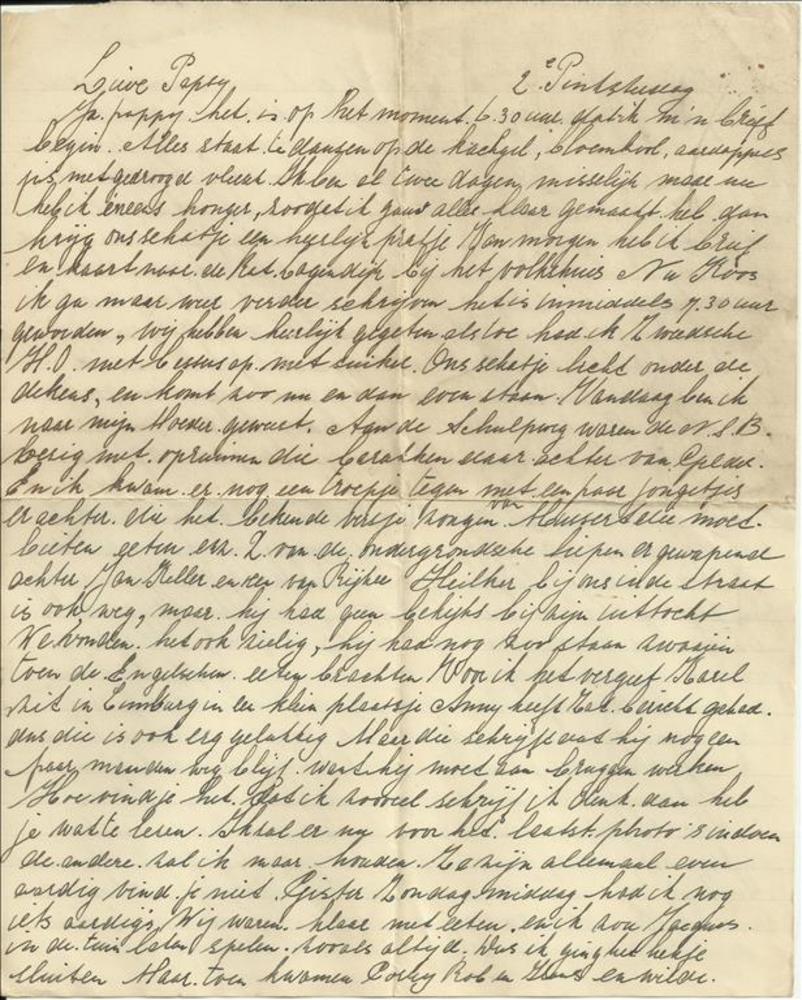 Lieve Papsy 2e Pinksterdag
Ja pappy het is op het moment 6.30 uur dat ik m'n brief
begin. Alles staat te dansen op de kachgel, bloemkool, aardappels
jus met gedroogd vleesch. Ik ben al twee dagen misselijk maar nu
heb ik eneens honger, zoodat ik gauw alles klaar gemaakt heb dan
krijg ons schatje een heerlijk prakje Van morgen heb ik brief
en kaart naar de Kat. bij het volkshuis Nu Koos
ik ga maar weer verder schrijven het is inmiddels 7.30 uur
geworden, wij hebben heerlijk gegeten als toe had ik Zweedsche
H.O. met bessesap met suiker. Ons schatje licht onder de
dekens, en komt zoo nu en dan even staan. Vandaag ben ik
naar mijn Moeder geweest. Aan de Schulpweg waren de N.S.B.
bezig met opruimen die barakken daar achter van
En ik kwam er nog een troepje tegen met een paar jongetjes
er achter die het bekende versje zongen van Mussert die moet
bieten eeten enz. 2 van de ondergrondsche liepen er gewapend
achter Jan Keller en een van Rijkee bij ons in de straat
is ook weg, maar hij had geen bekijks bij zijn uittocht
We vonden het ook zielig, hij had nog zoo staan zwaaien
toen de Engelschen eeten brachten Voor ik het vergeet Karel
zit in Limburg in een klein plaatsje Anny heeft Zat. bericht gehad.
dus die is ook erg gelukkig Maar die schrijft dat hij nog een
paar maanden weg blijf want hij moet aan bruggen werken
Hoe vind je het dat ik zooveel schrijf ik denk dan heb
je wat te lezen. Ik zal er nu voor het laatst photo's in doen
de andere zal ik maar houden. Ze zijn allemaal even
aardig vind je niet. Gister Zondag middag had ik nog
iets aardigs, Wij waren klaar met eeten, en ik zou Jacques
in de tuin laten spelen zooals altijd. Dus ik ging het hekje
sluiten Maar toen kwamen Corry Rob en Hans en wilde.